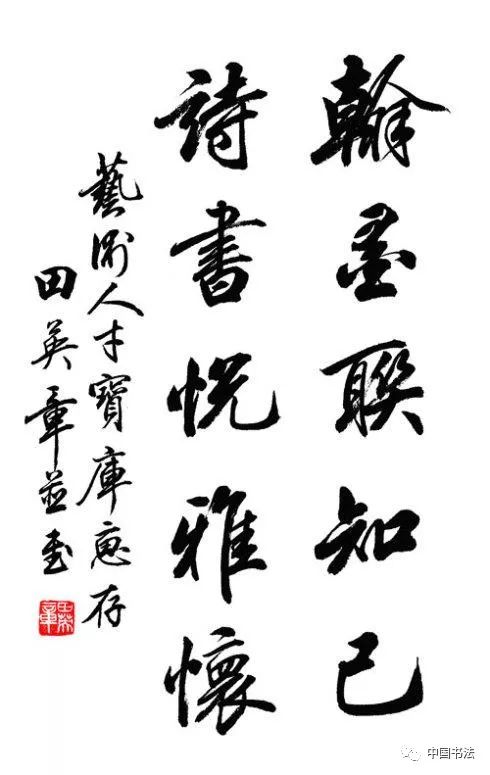 翰墨聯知己
詩書悦雅懷
藝術人才寶庫惠存
田英章並書
田英章
中国书法